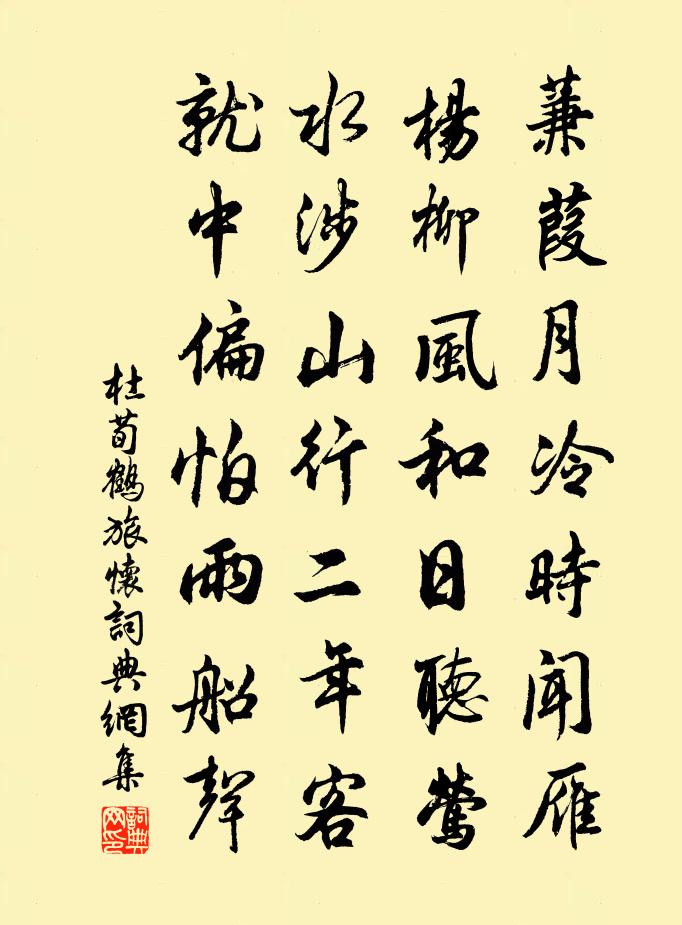 蒹葭月冷時聞雁
楊柳風和日聽鶯
水涉山行二年客
就中偏怕雨船聲
杜荀鶴旅懷詞典網集
詞典網印